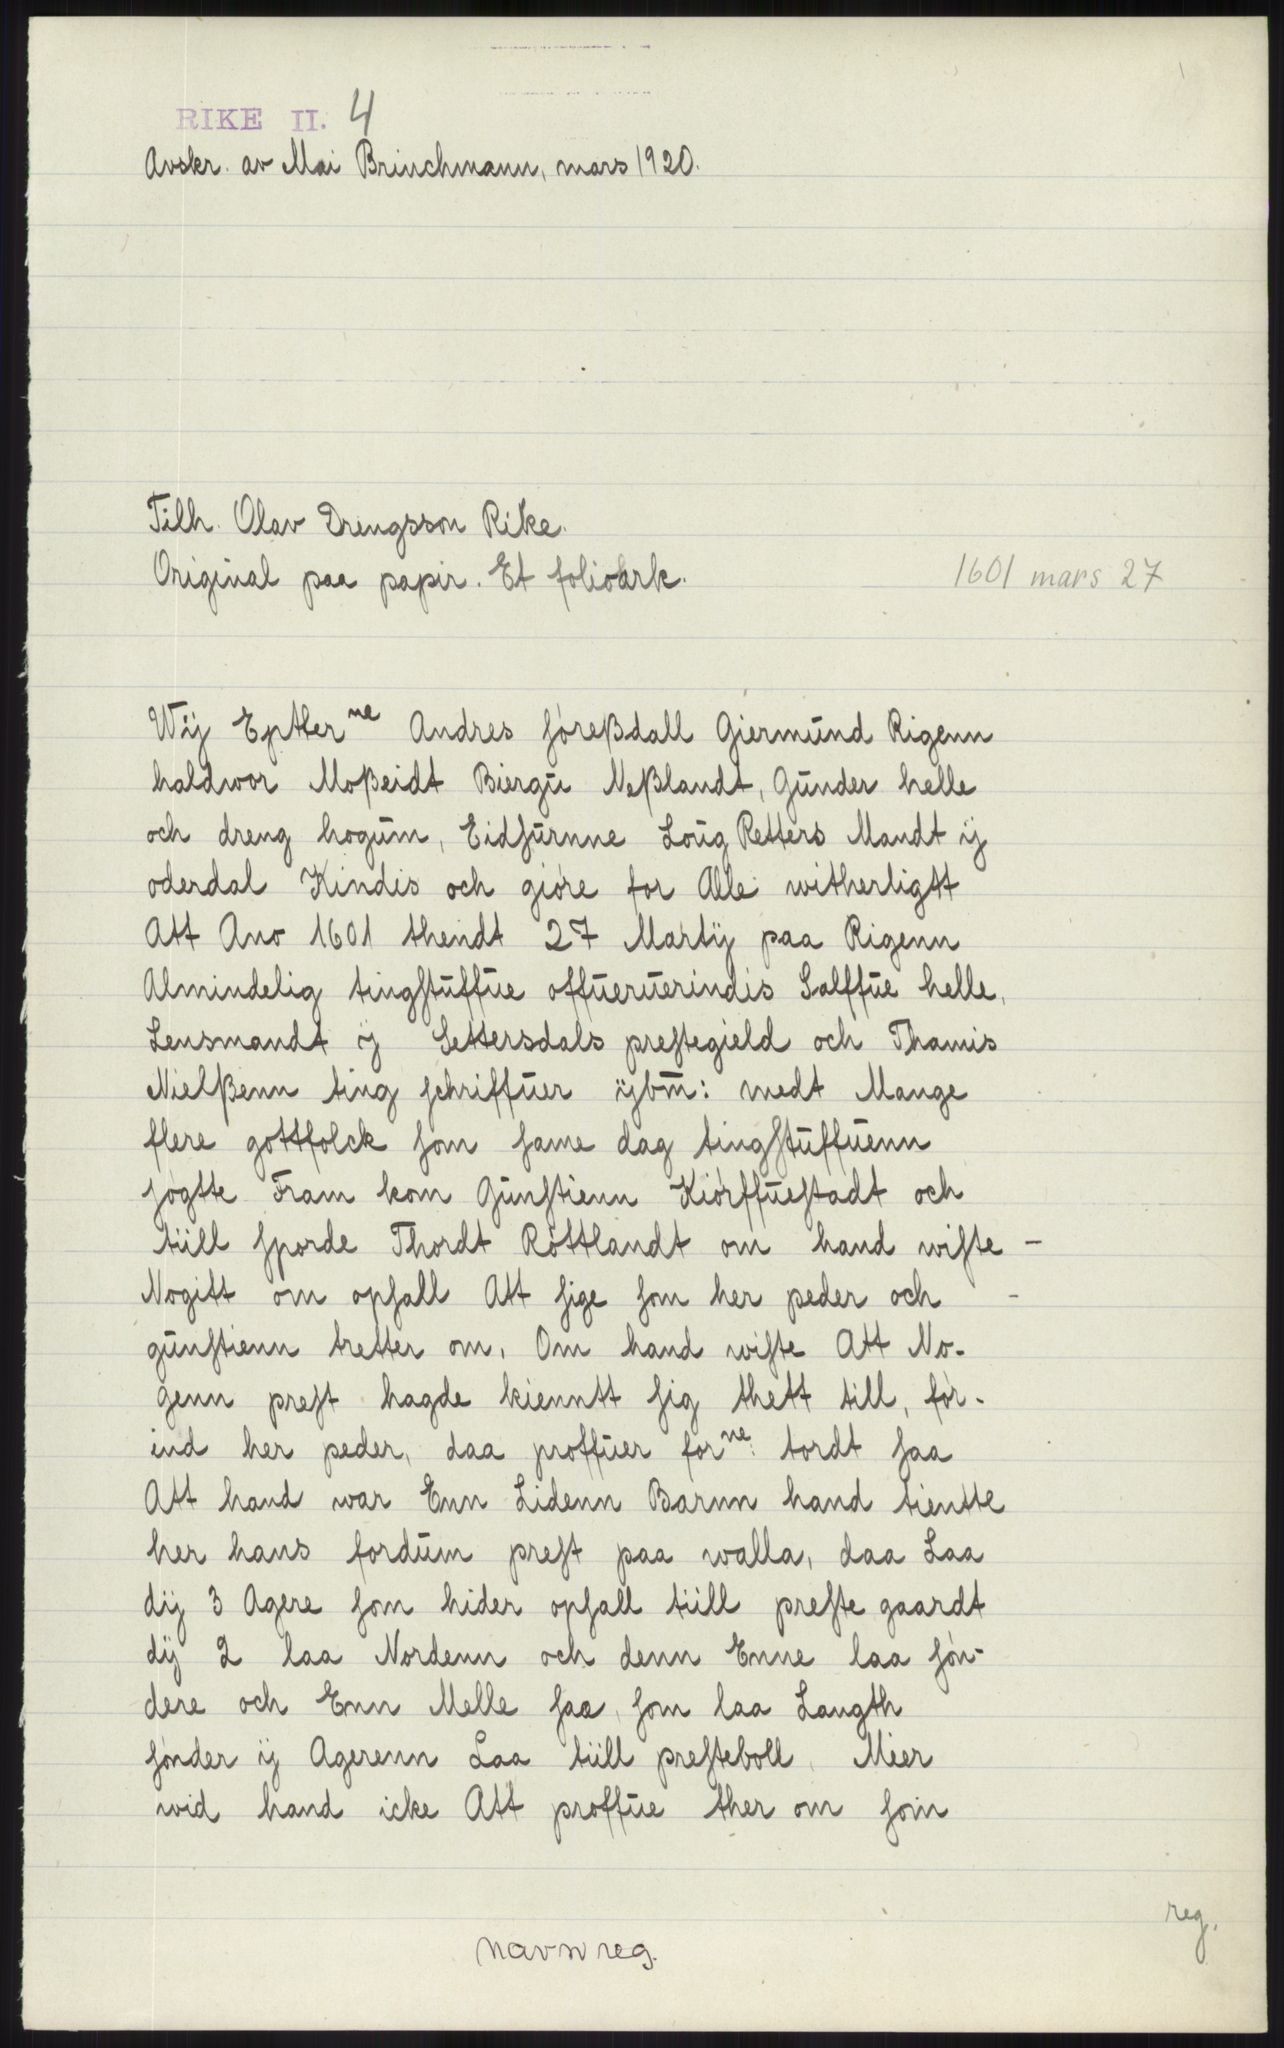 RIKE II. 4
Avskr. av Mai Brinchmann, mars 1920.
Tilh. Olav Drengsson Rike.
Original paa papir. Et folioark.
1601 mars 27
Wÿ Epther ne Andres ſóreßdall Giermūnd Rigenn
haldwor Moßeidt Biergū Neßlandt, Gūnder helle
och dreng hogūm, Eidſūrnne Loūg Retters Mandt ÿ
oderdal Kindis och gióre for Alle witherligtt
Att Ano 1601 thendt 27 Martÿ paa Rigenn
Almindelig tingſtūffūe offūerūerindis Salffūe helle,
Lensmandt ÿ Settersdals preſtegield och Thamis
Nielßenn ting ſchriffūer ÿbm̄: medt Mange
flere gottfolck ſom ſame dag tingſtūffūenn
ſógtte Fram kom Gūnſtienn Kiórffūeſtadt och
tüll ſporde Thordt Róttlandt om hand wiſte –
Nogitt om opſall Att ſige ſom her peder och –
gūnſtienn tretter om, Om hand wiſte Att No-
genn preſt hagde kienntt ſig thett till, for-
ind her peder, daa proffūer for ne: tordt ſaa
Att hand war Enn Lidenn Barnn hand tientte
her hans fordūm preſt paa walla, daa Laa
dÿ 3 Agere ſom hider opſall tüll preſte gaardt
dÿ 2 laa Nordenn och denn Enne laa ſón-
dere och Enn Melle ſaa, ſom laa Langth
ſónder ÿ Agerenn Laa tüll preſteboll, Meer
wid hand icke Att proffūe ther om ſom
reg.
navnreg.